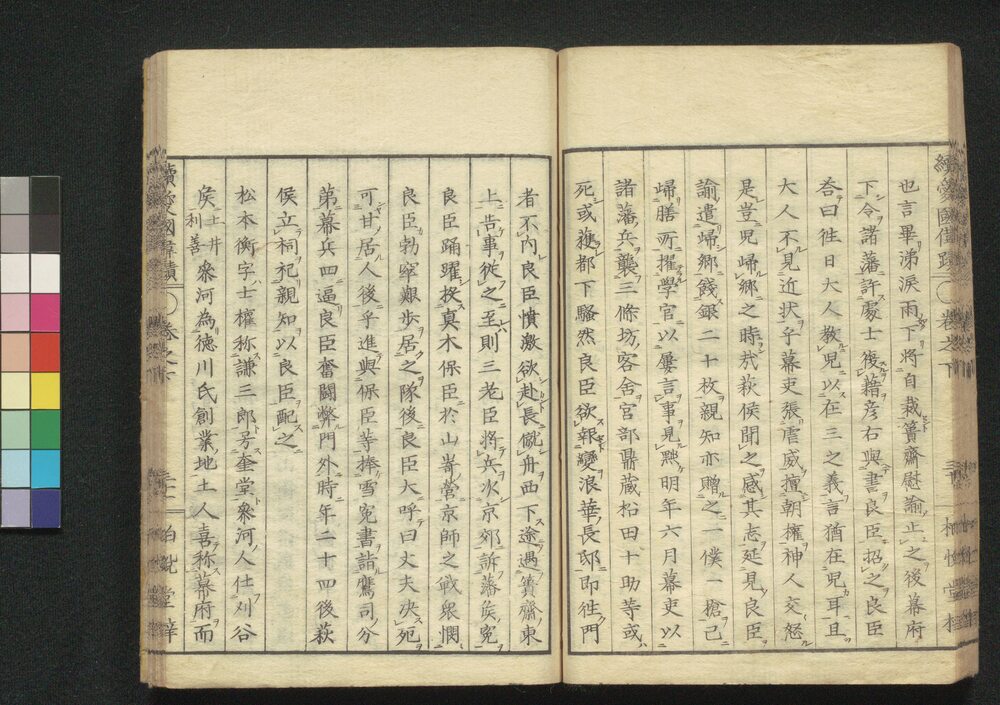 也言畢涕淚雨下將自裁簣齋慰諭止之後幕府
下令諸藩許處士復藉彦右與書良臣招之良臣
答曰徃日大人教兒以在三之義言猶在兒耳且
大人不見近状乎幕吏張虐威擅朝權神人交怒
是豈兒歸郷之時哉萩侯聞之感其志延見良臣
諭遣歸郷餞銀二十枚親知亦贈之一僕一槍已
歸膳所擢學官以屢言事見黜明年六月幕吏以
諸藩兵襲三條坊客舍宮部鼎蔵松田十助等或
死或獲都下騷然良臣欲報變浪華長邸即徃門
者不内良臣憤激欲赴長僦舟西下途遇簣齋東
上告事從之至則三老臣將兵次京郊訴藩侯冤
良臣踊躍投真木保臣於山嵜營京師之戰衆憫
良臣勃窣艱歩居之隊後良臣大呼曰丈夫决死
可甘居人後乎進與保臣等捧雪冤書詣鷹司分
第幕兵四逼良臣奮鬪斃門外時年二十四後萩
侯立祠祀親知以良臣配之
松本衡字士權称謙三郎号奎堂參河人仕刈谷
侯土井利善參河為徳川氏創業地土人喜称幕府而